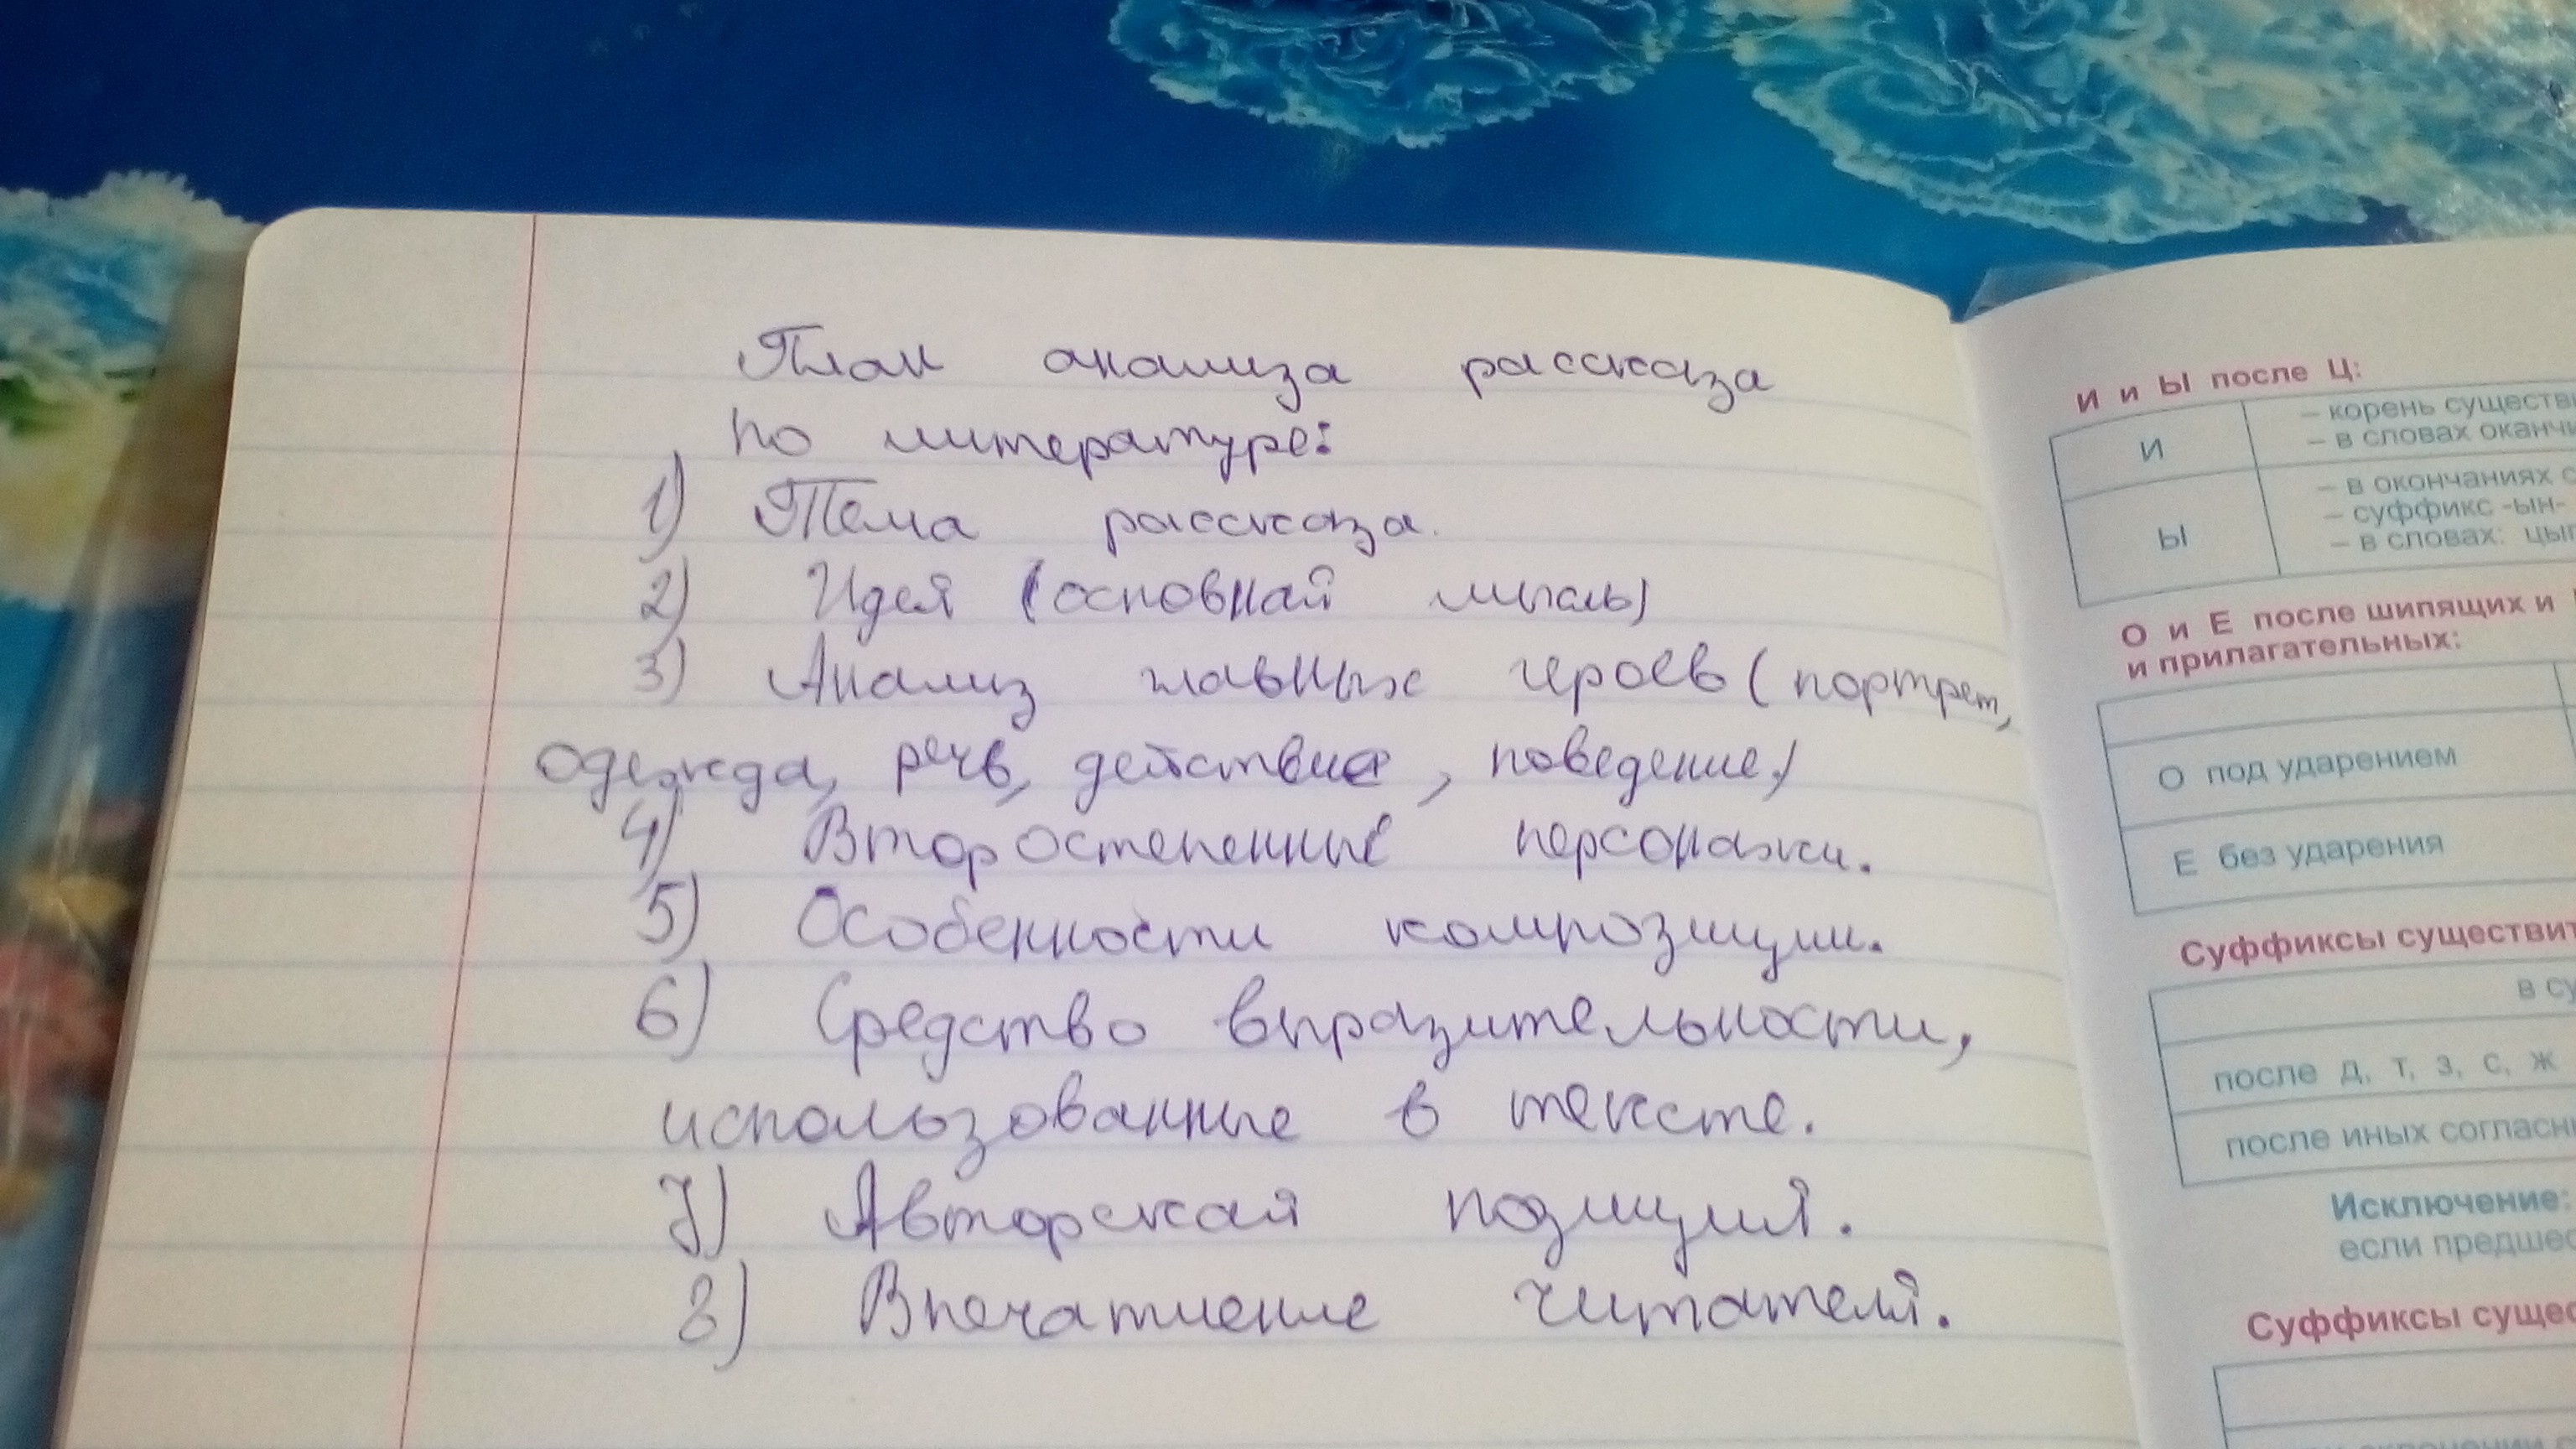 План анализа рассказа
по литературе:
1) Тема рассказа.
2) Идея (основной мысль)
3) Анализ главных героев (портрет,
одежда, речь, действие, поведение)
4) Второстепенные персонажи.
5) Особенности композиции.
6) Средство выразительности,
использованные в тексте.
7) Авторская позиция.
8) Впечатление читателя.
И и Ы после Ц:
И
– корень существ
– в словах оканчи
Ы
– в окончаниях с
– суффикс -ын-
– в словах: цып
О и Е после шипящих и
и прилагательных:
О под ударением
Е без ударения
Суффиксы существит
в су
после д, т, з, с, ж
после иных согласн
Исключение:
если предшес
Суффиксы сущес